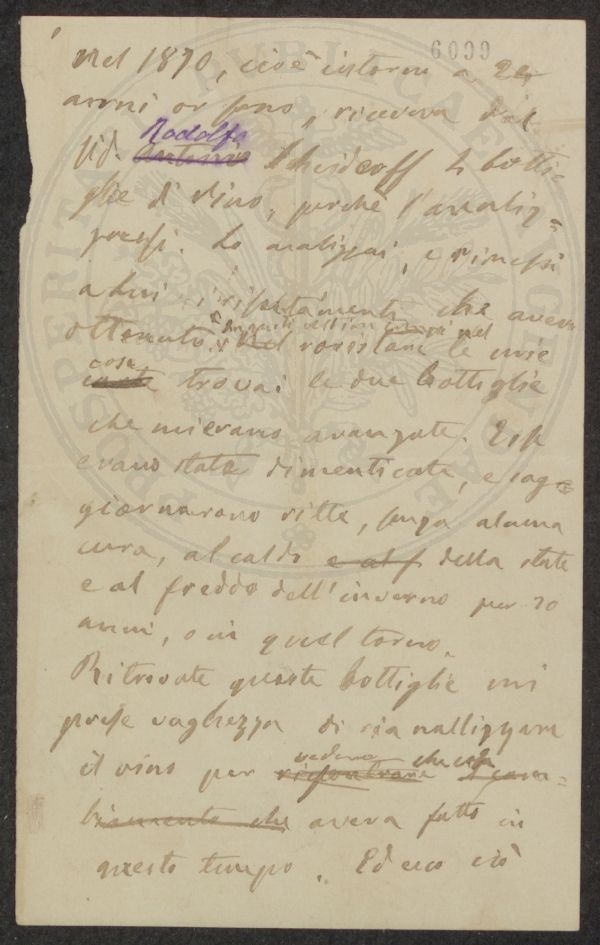 6099
Nel 1870, cioè intorno a 24
anni or sono, riceveva dal
Rodolfo
Sid. Scheidcoff 4 botti-
glie di vino, perchè l'analiz=
zassi. Lo analizzai, e rimessi
a lui i risultamenti che aveva
ottenuto. nel
rovistare le mie
cose
carte trovai le due bottiglie
che mi erano avanzate. Esse
erano state dimenticate, e sog=
giornarono ritte, senza alcuna
cura, al caldo e al f della state
e al freddo dell'inverno per 20
anni, o in quel torno.
Ritrovate queste bottiglie mi
prese vaghezza di rianalizzare
vedere che
il vino per riscontrare il cam=
biamento che aveva fatto in
questo tempo. Ed ecco ciò
PUBLICAE
PROSPERITATI